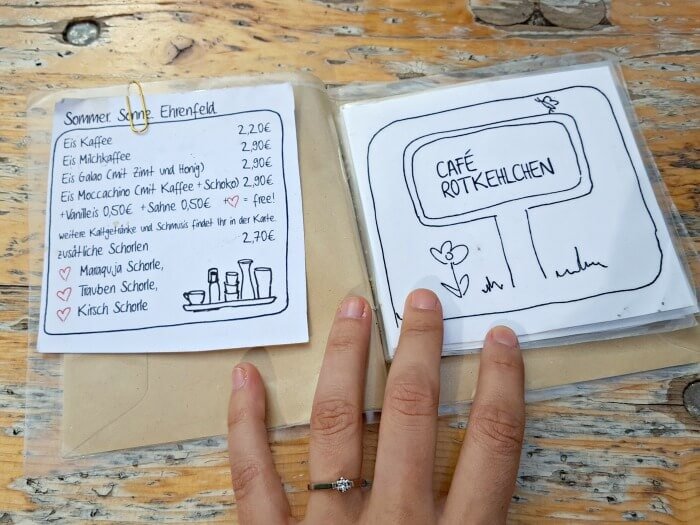 Sommer Sonne Ehrenfeld
Eis Kaffee 2,20€
Eis Milchkaffee 2,90€
Eis Galao (mit Zimt und Honig) 2,90€
Eis Moccachino (mit Kaffee + Schoko) 2,90€
+Vanilleis 0,50€ + Sahne 0,50€ +♡ = free!
weitere Kaltgetränke und Schmusis findet Ihr in der Karte.
zusätliche Schorlen 2,70€
♡ Maraquja Schorle,
♡ Trauben Schorle,
♡ Kirsch Schorle
CAFÉ
ROTKEHLCHEN